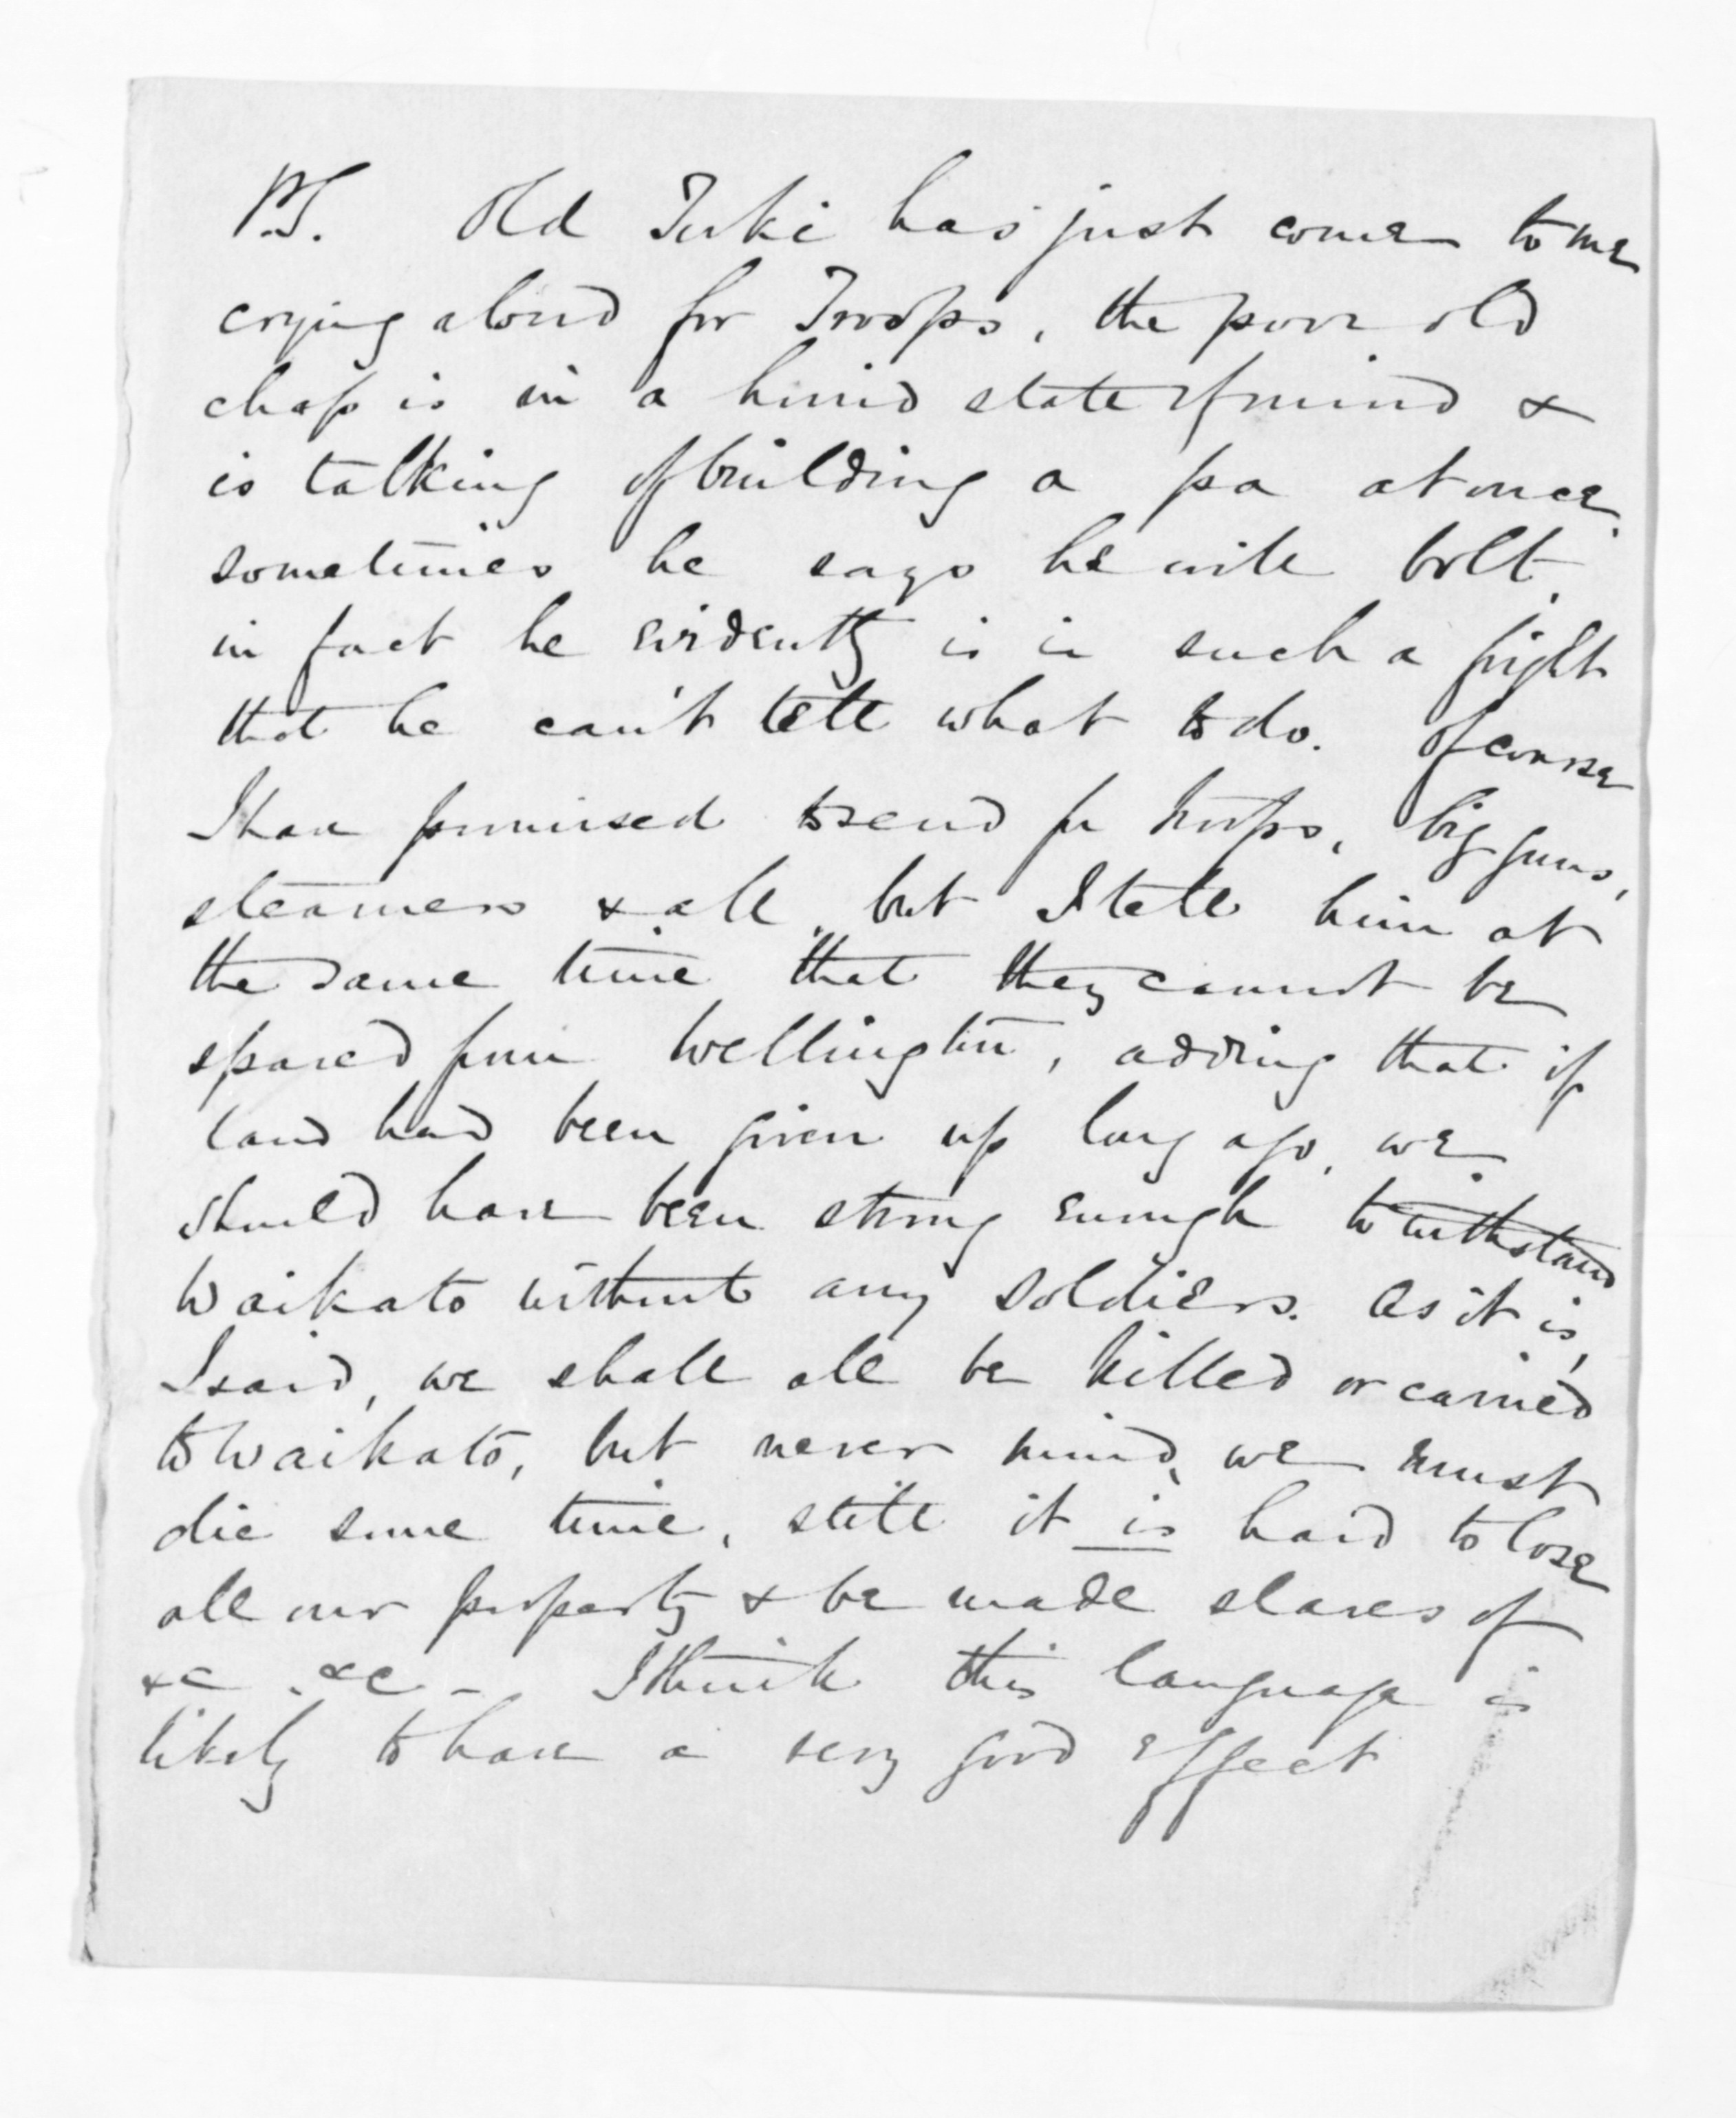 P.S. Old Turki has just come to me
crying aloud for Troops, the poor old
chap is in a horrid state of mind &
is talking of building a pa at once,
sometimes he says he will bolt,
in fact he evidently is in such a fright
that he can't tell what to do. Of course
I have promised to send for troops, big guns,
steamers & all, but I tell him at
the same time that they cannot be
spared from Wellington, adding that if
land had been given up long ago, we
should have been strong enough to withstand
Waikato without any soldiers. As it is,
I said, we shall all be killed or carried
to Waikato, but never mind, we must
die some time, still it is hard to lose
all our property & be made slaves of
&c. &c - I think this language is
likely to have a very good effect